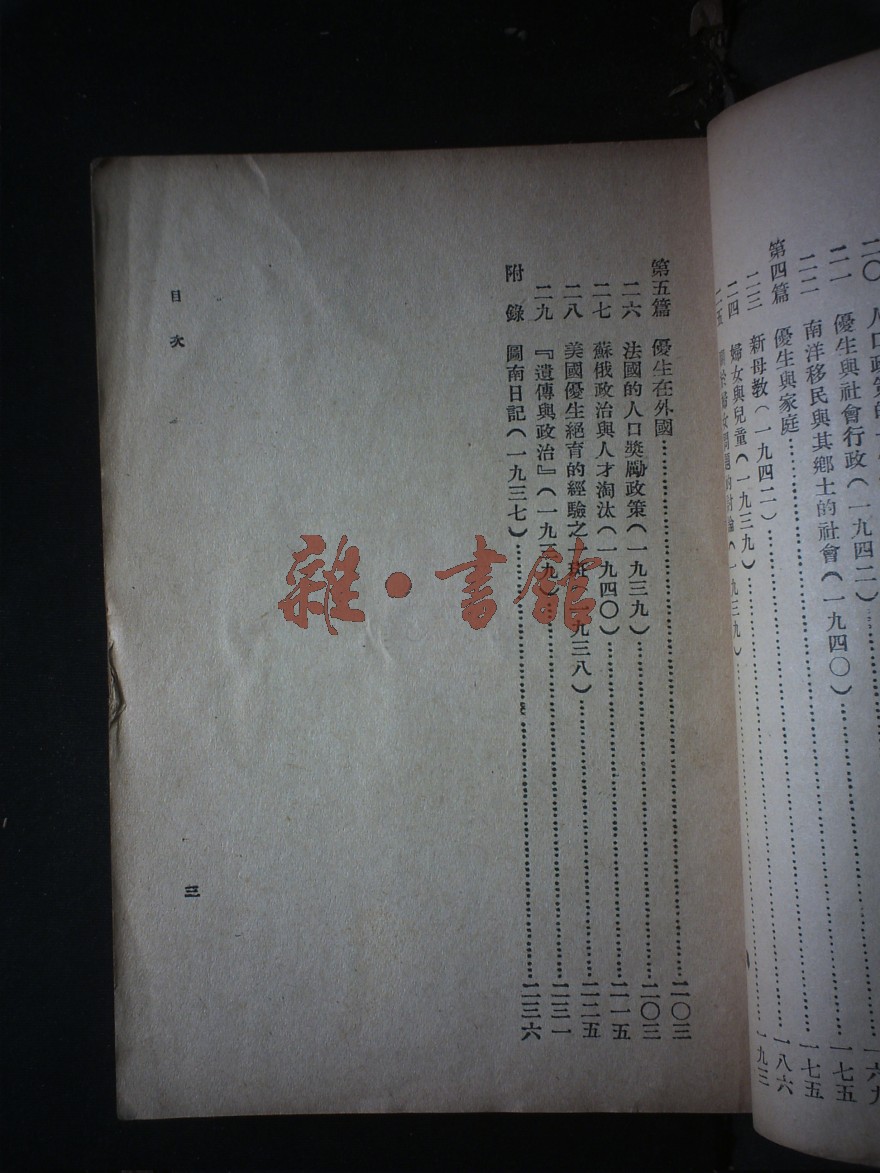 二〇 人口政策的
二一 優生與社會行政(一九四二)
二二 南洋移民與其鄉土的社會(一九四〇)……一六九
第四篇 優生與家庭……一七五
二三 新母教(一九四二)……一七五
二四 婦女與兒童(一九三九)……一八六
二五 關於婦女問題的討論(一九三九)……一九三
第五篇 優生在外國……二〇三
二六 法國的人口獎勵政策(一九三九)……二〇三
二七 蘇俄政治與人才淘汰(一九四〇)……二一五
二八 美國優生絕育的經驗之一斑(一九三八)……二二五
二九 『遺傳與政治』(一九三九)……二三一
附錄 圖南日記(一九三七)……二三六
目次
三
雜·書館